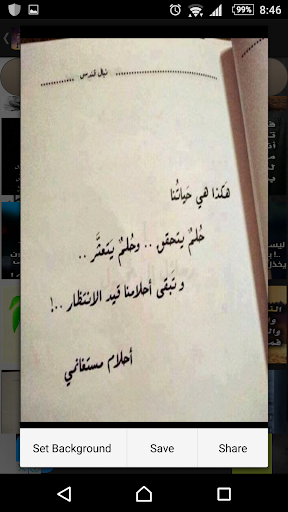 99% 8:46
نبال قندس
هكذا هي حَياتُنا
حُلمٌ يَتحقق .. وحُلمٌ يَتعثَّر ..
و تَبقى أحلامنا قيد الانتظار ..!
أحلام مستغانمي
Set Background Save Share